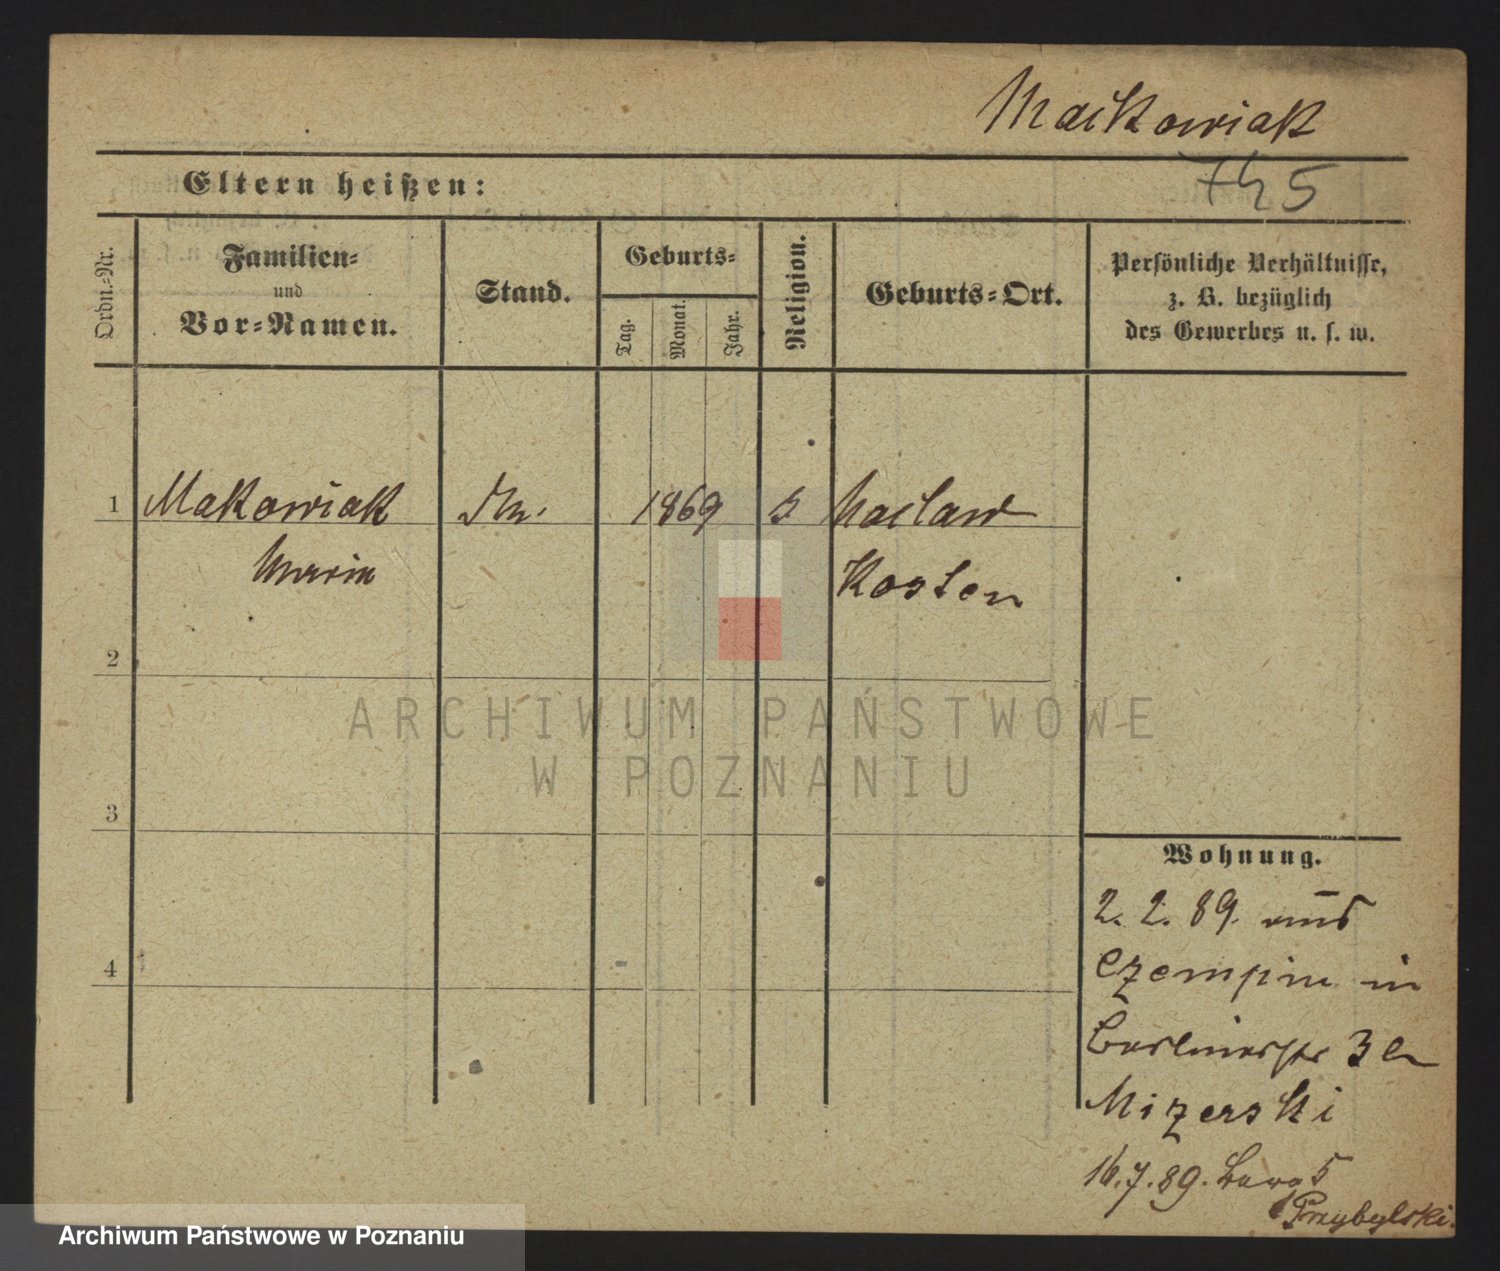 Maćkowiak
745
Eltern heißen:
Ordn.-Nr.
Familien-
und
Vor-Namen.
Stand.
Geburts-
Tag.
Monat.
Jahr.
Religion.
Geburts-Ort.
Persönliche Verhältnisse,
z. B. bezüglich
des Gewerbes u. s. w.
1
Makowiak
1869
Maria
Kosten
2
3
4
ARCHIWUM PAŃSTWOWE
W POZNANIU
Wohnung.
2. 2. 89. aus
Czempin in
Berlinerstr 3 bei
Mizerski
16.7.89. 5
Przybylski.
Archiwum Państwowe w Poznaniu